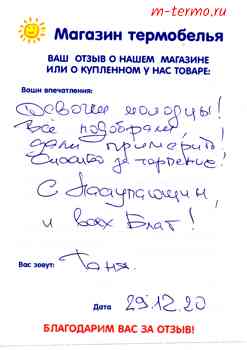 m-termo.ru
Магазин термобелья
ВАШ ОТЗЫВ О НАШЕМ МАГАЗИНЕ
ИЛИ О КУПЛЕННОМ У НАС ТОВАРЕ:
Ваши впечатления:
Девочки молодцы!
Всё подобрали,
дали примерить!
Спасибо за терпение!
С Наступающим,
и всех Благ!
Вас зовут: Таня.
Дата 29.12.20
БЛАГОДАРИМ ВАС ЗА ОТЗЫВ!